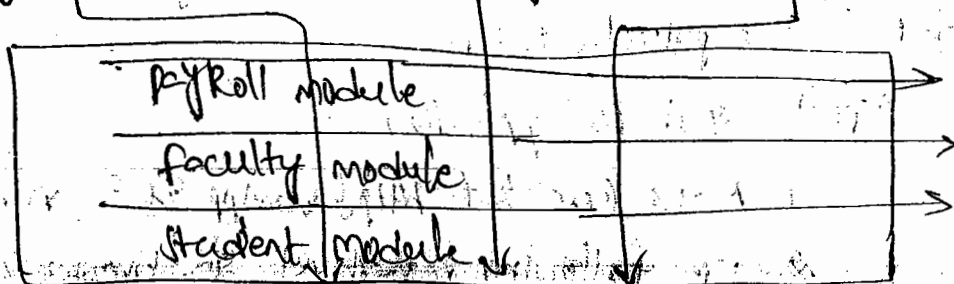 payRoll module
faculty module
student module